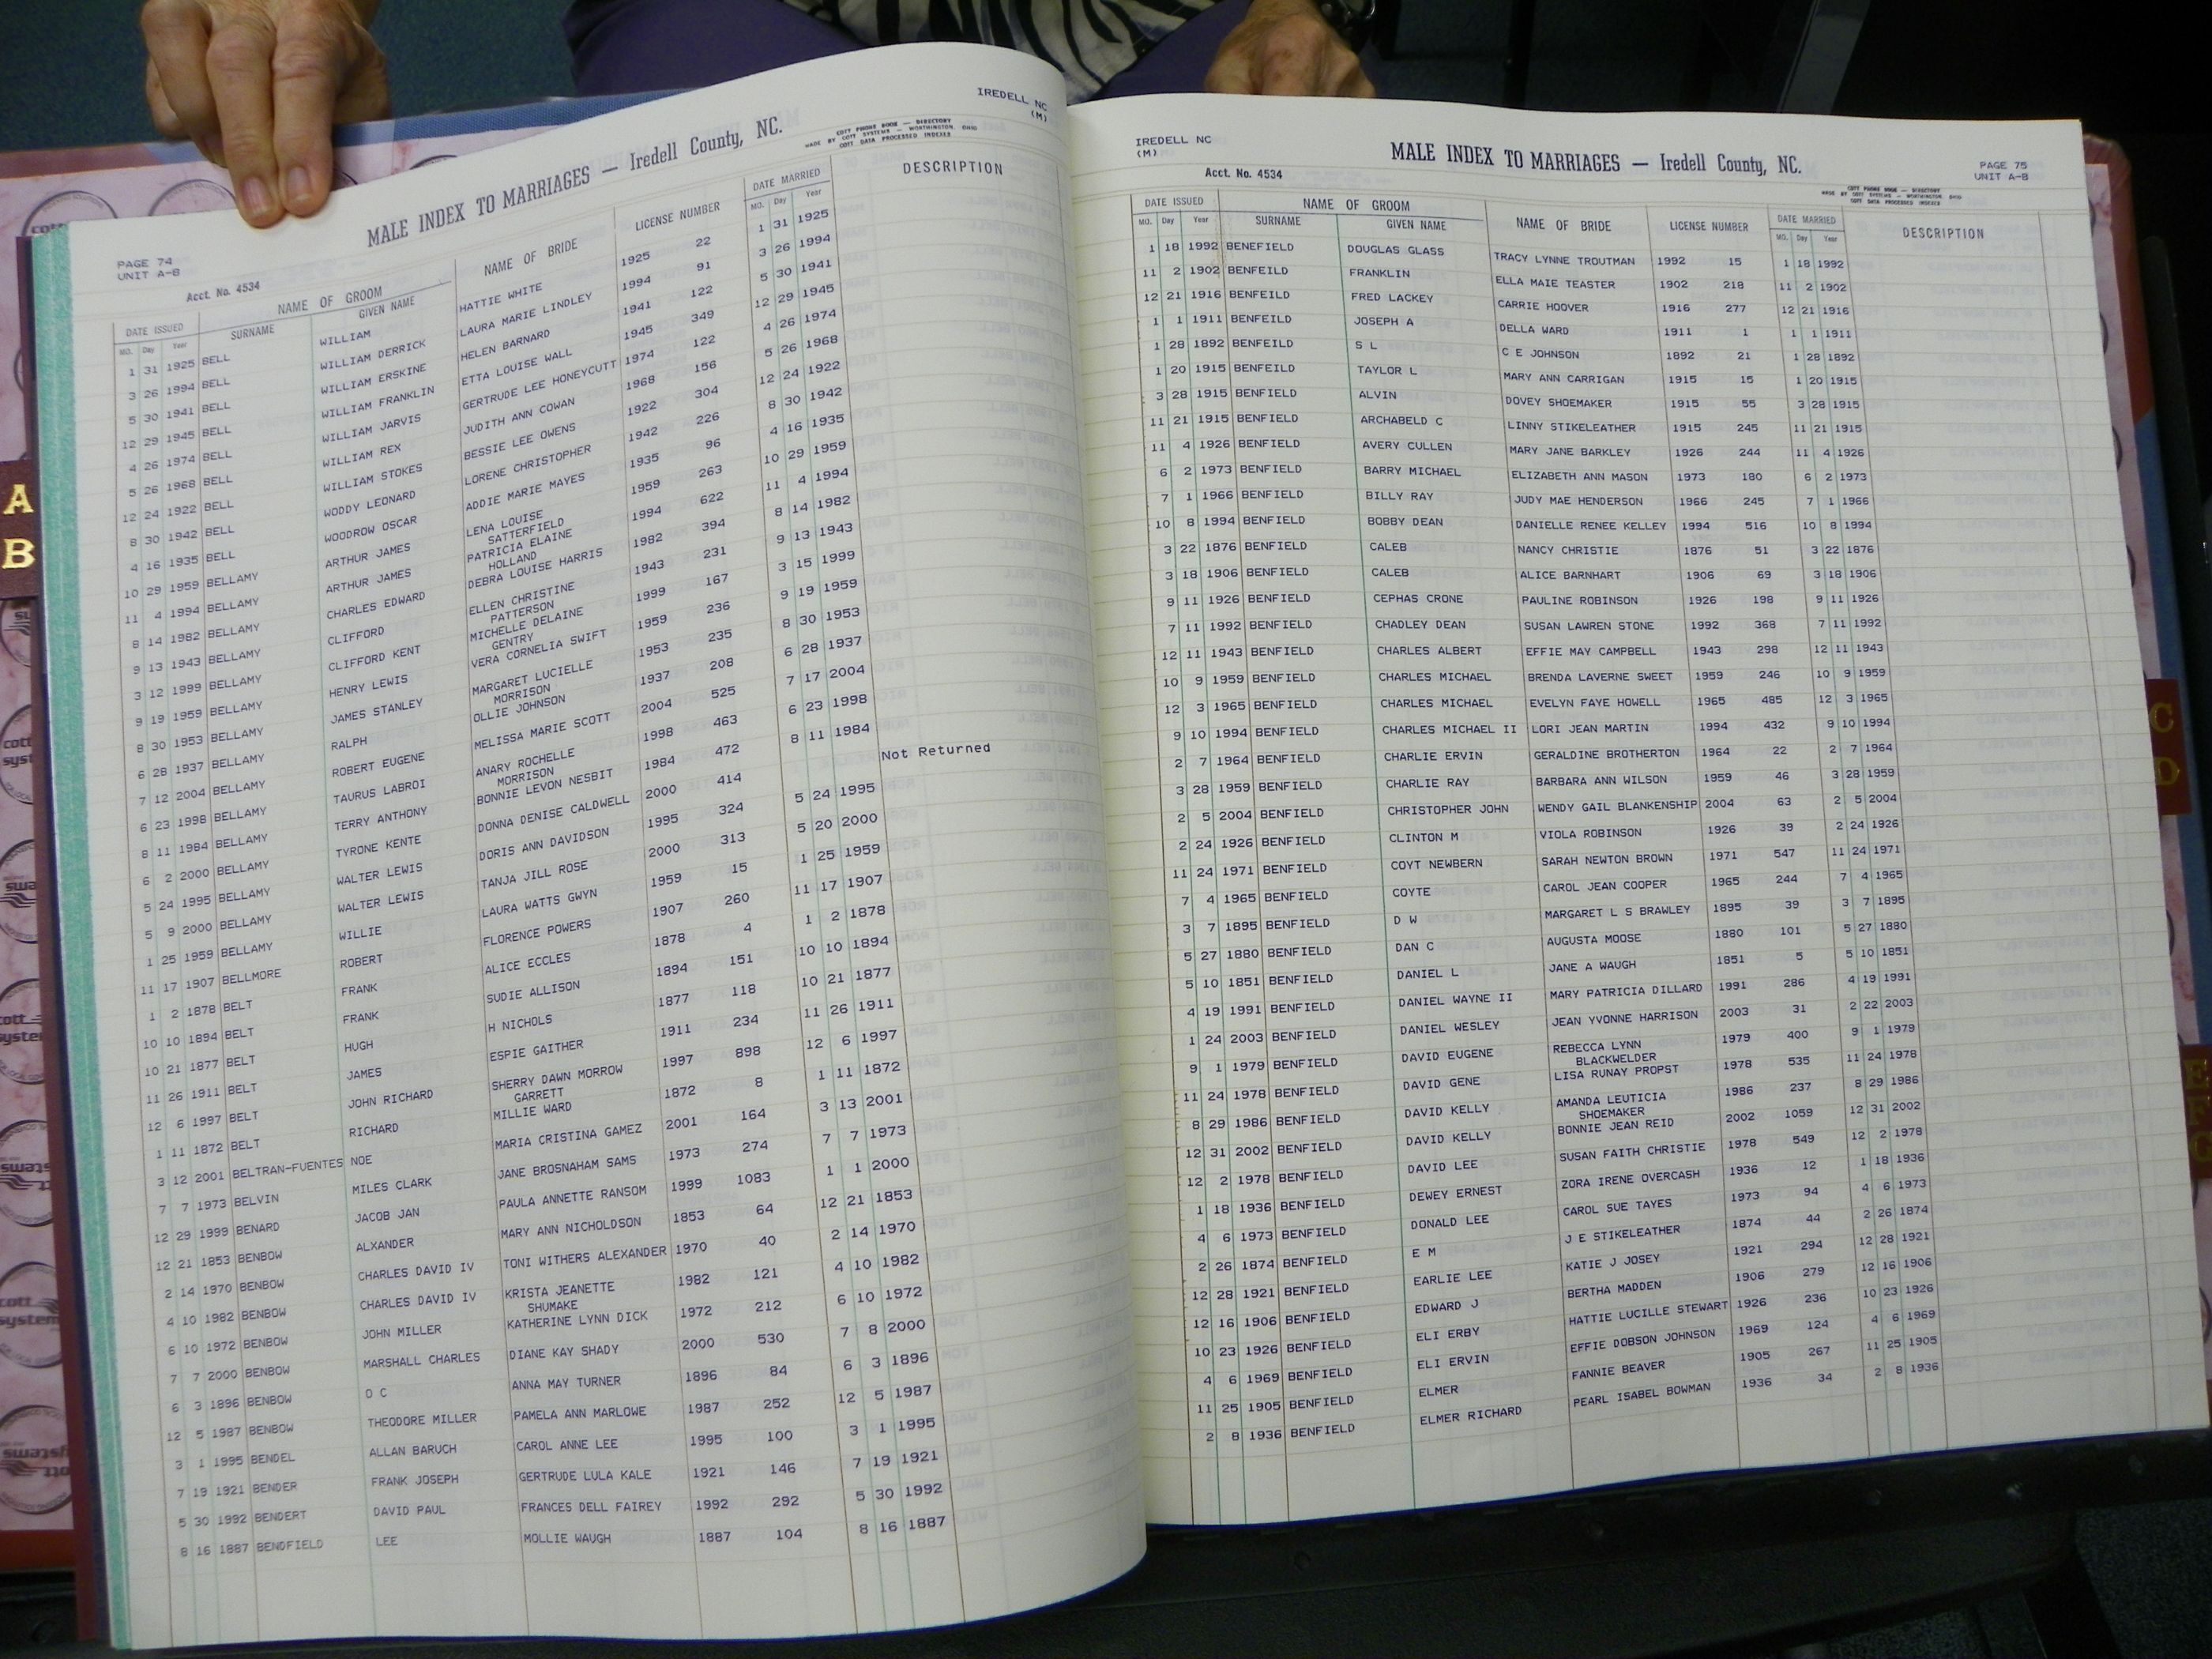 IREDELL NC
(M)
MALE INDEX TO MARRIAGES — Iredell County, NC.
COTT PHONE BOOK — DIRECTORY
MADE BY COTT SYSTEMS — WORTHINGTON, OHIO
COTT DATA PROCESSED INDEXES
PAGE 74
UNIT A-B
Acct. No. 4534
DATE ISSUED NAME OF GROOM NAME OF BRIDE LICENSE NUMBER DATE MARRIED DESCRIPTION
MO. Day Year SURNAME GIVEN NAME MO. Day Year
1 31 1925 BELL WILLIAM HATTIE WHITE 1925 22 1 31 1925
3 26 1994 BELL WILLIAM DERRICK LAURA MARIE LINDLEY 1994 91 3 26 1994
5 30 1941 BELL WILLIAM ERSKINE HELEN BARNARD 1941 122 5 30 1941
12 29 1945 BELL WILLIAM FRANKLIN ETTA LOUISE WALL 1945 349 12 29 1945
4 26 1974 BELL WILLIAM JARVIS GERTRUDE LEE HONEYCUTT 1974 122 4 26 1974
5 26 1968 BELL WILLIAM REX JUDITH ANN COWAN 1968 156 5 26 1968
12 24 1922 BELL WILLIAM STOKES BESSIE LEE OWENS 1922 304 12 24 1922
8 30 1942 BELL WODDY LEONARD LORENE CHRISTOPHER 1942 226 8 30 1942
4 16 1935 BELL WOODROW OSCAR ADDIE MARIE MAYES 1935 96 4 16 1935
10 29 1959 BELLAMY ARTHUR JAMES LENA LOUISE 1959 263 10 29 1959
SATTERFIELD
11 4 1994 BELLAMY ARTHUR JAMES PATRICIA ELAINE 1994 622 11 4 1994
HOLLAND
8 14 1982 BELLAMY CHARLES EDWARD DEBRA LOUISE HARRIS 1982 394 8 14 1982
9 13 1943 BELLAMY CLIFFORD ELLEN CHRISTINE 1943 231 9 13 1943
PATTERSON
3 12 1999 BELLAMY CLIFFORD KENT MICHELLE DELAINE 1999 167 3 15 1999
GENTRY
9 19 1959 BELLAMY HENRY LEWIS VERA CORNELIA SWIFT 1959 236 9 19 1959
8 30 1953 BELLAMY JAMES STANLEY MARGARET LUCIELLE 1953 235 8 30 1953
MORRISON
6 28 1937 BELLAMY RALPH OLLIE JOHNSON 1937 208 6 28 1937
7 12 2004 BELLAMY ROBERT EUGENE MELISSA MARIE SCOTT 2004 525 7 17 2004
6 23 1998 BELLAMY TAURUS LABROI ANARY ROCHELLE 1998 463 6 23 1998
MORRISON
8 11 1984 BELLAMY TERRY ANTHONY BONNIE LEVON NESBIT 1984 472 8 11 1984
6 2 2000 BELLAMY TYRONE KENTE DONNA DENISE CALDWELL 2000 414 Not Returned
5 24 1995 BELLAMY WALTER LEWIS DORIS ANN DAVIDSON 1995 324 5 24 1995
5 9 2000 BELLAMY WALTER LEWIS TANJA JILL ROSE 2000 313 5 20 2000
1 25 1959 BELLAMY WILLIE LAURA WATTS GWYN 1959 15 1 25 1959
11 17 1907 BELLMORE ROBERT FLORENCE POWERS 1907 260 11 17 1907
1 2 1878 BELT FRANK ALICE ECCLES 1878 4 1 2 1878
10 10 1894 BELT FRANK SUDIE ALLISON 1894 151 10 10 1894
10 21 1877 BELT HUGH H NICHOLS 1877 118 10 21 1877
11 26 1911 BELT JAMES ESPIE GAITHER 1911 234 11 26 1911
12 6 1997 BELT JOHN RICHARD SHERRY DAWN MORROW 1997 898 12 6 1997
GARRETT
1 11 1872 BELT RICHARD MILLIE WARD 1872 8 1 11 1872
3 12 2001 BELTRAN-FUENTES NOE MARIA CRISTINA GAMEZ 2001 164 3 13 2001
7 7 1973 BELVIN MILES CLARK JANE BROSNAHAM SAMS 1973 274 7 7 1973
12 29 1999 BENARD JACOB JAN PAULA ANNETTE RANSOM 1999 1083 1 1 2000
12 21 1853 BENBOW ALXANDER MARY ANN NICHOLDSON 1853 64 12 21 1853
2 14 1970 BENBOW CHARLES DAVID IV TONI WITHERS ALEXANDER 1970 40 2 14 1970
4 10 1982 BENBOW CHARLES DAVID IV KRISTA JEANETTE 1982 121 4 10 1982
SHUMAKE
6 10 1972 BENBOW JOHN MILLER KATHERINE LYNN DICK 1972 212 6 10 1972
7 7 2000 BENBOW MARSHALL CHARLES DIANE KAY SHADY 2000 530 7 8 2000
6 3 1896 BENBOW O C ANNA MAY TURNER 1896 84 6 3 1896
12 5 1987 BENBOW THEODORE MILLER PAMELA ANN MARLOWE 1987 252 12 5 1987
3 1 1995 BENDEL ALLAN BARUCH CAROL ANNE LEE 1995 100 3 1 1995
7 19 1921 BENDER FRANK JOSEPH GERTRUDE LULA KALE 1921 146 7 19 1921
5 30 1992 BENDERT DAVID PAUL FRANCES DELL FAIREY 1992 292 5 30 1992
8 16 1887 BENDFIELD LEE MOLLIE WAUGH 1887 104 8 16 1887
IREDELL NC
(M)
MALE INDEX TO MARRIAGES — Iredell County, NC.
PAGE 75
UNIT A-B
Acct. No. 4534
COTT PHONE BOOK — DIRECTORY
MADE BY COTT SYSTEMS — WORTHINGTON, OHIO
COTT DATA PROCESSED INDEXES
DATE ISSUED NAME OF GROOM NAME OF BRIDE LICENSE NUMBER DATE MARRIED DESCRIPTION
MO. Day Year SURNAME GIVEN NAME MO. Day Year
1 18 1992 BENEFIELD DOUGLAS GLASS TRACY LYNNE TROUTMAN 1992 15 1 18 1992
11 2 1902 BENFEILD FRANKLIN ELLA MAIE TEASTER 1902 218 11 2 1902
12 21 1916 BENFEILD FRED LACKEY CARRIE HOOVER 1916 277 12 21 1916
1 1 1911 BENFEILD JOSEPH A DELLA WARD 1911 1 1 1 1911
1 28 1892 BENFEILD S L C E JOHNSON 1892 21 1 28 1892
1 20 1915 BENFEILD TAYLOR L MARY ANN CARRIGAN 1915 15 1 20 1915
3 28 1915 BENFIELD ALVIN DOVEY SHOEMAKER 1915 55 3 28 1915
11 21 1915 BENFIELD ARCHABELD C LINNY STIKELEATHER 1915 245 11 21 1915
11 4 1926 BENFIELD AVERY CULLEN MARY JANE BARKLEY 1926 244 11 4 1926
6 2 1973 BENFIELD BARRY MICHAEL ELIZABETH ANN MASON 1973 180 6 2 1973
7 1 1966 BENFIELD BILLY RAY JUDY MAE HENDERSON 1966 245 7 1 1966
10 8 1994 BENFIELD BOBBY DEAN DANIELLE RENEE KELLEY 1994 516 10 8 1994
3 22 1876 BENFIELD CALEB NANCY CHRISTIE 1876 51 3 22 1876
3 18 1906 BENFIELD CALEB ALICE BARNHART 1906 69 3 18 1906
9 11 1926 BENFIELD CEPHAS CRONE PAULINE ROBINSON 1926 198 9 11 1926
7 11 1992 BENFIELD CHADLEY DEAN SUSAN LAWREN STONE 1992 368 7 11 1992
12 11 1943 BENFIELD CHARLES ALBERT EFFIE MAY CAMPBELL 1943 298 12 11 1943
10 9 1959 BENFIELD CHARLES MICHAEL BRENDA LAVERNE SWEET 1959 246 10 9 1959
12 3 1965 BENFIELD CHARLES MICHAEL EVELYN FAYE HOWELL 1965 485 12 3 1965
9 10 1994 BENFIELD CHARLES MICHAEL II LORI JEAN MARTIN 1994 432 9 10 1994
2 7 1964 BENFIELD CHARLIE ERVIN GERALDINE BROTHERTON 1964 22 2 7 1964
3 28 1959 BENFIELD CHARLIE RAY BARBARA ANN WILSON 1959 46 3 28 1959
2 5 2004 BENFIELD CHRISTOPHER JOHN WENDY GAIL BLANKENSHIP 2004 63 2 5 2004
2 24 1926 BENFIELD CLINTON M VIOLA ROBINSON 1926 39 2 24 1926
11 24 1971 BENFIELD COYT NEWBERN SARAH NEWTON BROWN 1971 547 11 24 1971
7 4 1965 BENFIELD COYTE CAROL JEAN COOPER 1965 244 7 4 1965
3 7 1895 BENFIELD D W MARGARET L S BRAWLEY 1895 39 3 7 1895
5 27 1880 BENFIELD DAN C AUGUSTA MOOSE 1880 101 5 27 1880
5 10 1851 BENFIELD DANIEL L JANE A WAUGH 1851 5 5 10 1851
4 19 1991 BENFIELD DANIEL WAYNE II MARY PATRICIA DILLARD 1991 286 4 19 1991
1 24 2003 BENFIELD DANIEL WESLEY JEAN YVONNE HARRISON 2003 31 2 22 2003
9 1 1979 BENFIELD DAVID EUGENE REBECCA LYNN 1979 400 9 1 1979
BLACKWELDER
11 24 1978 BENFIELD DAVID GENE LISA RUNAY PROPST 1978 535 11 24 1978
8 29 1986 BENFIELD DAVID KELLY AMANDA LEUTICIA 1986 237 8 29 1986
SHOEMAKER
12 31 2002 BENFIELD DAVID KELLY BONNIE JEAN REID 2002 1059 12 31 2002
12 2 1978 BENFIELD DAVID LEE SUSAN FAITH CHRISTIE 1978 549 12 2 1978
1 18 1936 BENFIELD DEWEY ERNEST ZORA IRENE OVERCASH 1936 12 1 18 1936
4 6 1973 BENFIELD DONALD LEE CAROL SUE TAYES 1973 94 4 6 1973
2 26 1874 BENFIELD E M J E STIKELEATHER 1874 44 2 26 1874
12 28 1921 BENFIELD EARLIE LEE KATIE J JOSEY 1921 294 12 28 1921
12 16 1906 BENFIELD EDWARD J BERTHA MADDEN 1906 279 12 16 1906
10 23 1926 BENFIELD ELI ERBY HATTIE LUCILLE STEWART 1926 236 10 23 1926
4 6 1969 BENFIELD ELI ERVIN EFFIE DOBSON JOHNSON 1969 124 4 6 1969
11 25 1905 BENFIELD ELMER FANNIE BEAVER 1905 267 11 25 1905
2 8 1936 BENFIELD ELMER RICHARD PEARL ISABEL BOWMAN 1936 34 2 8 1936
A
B
C
D